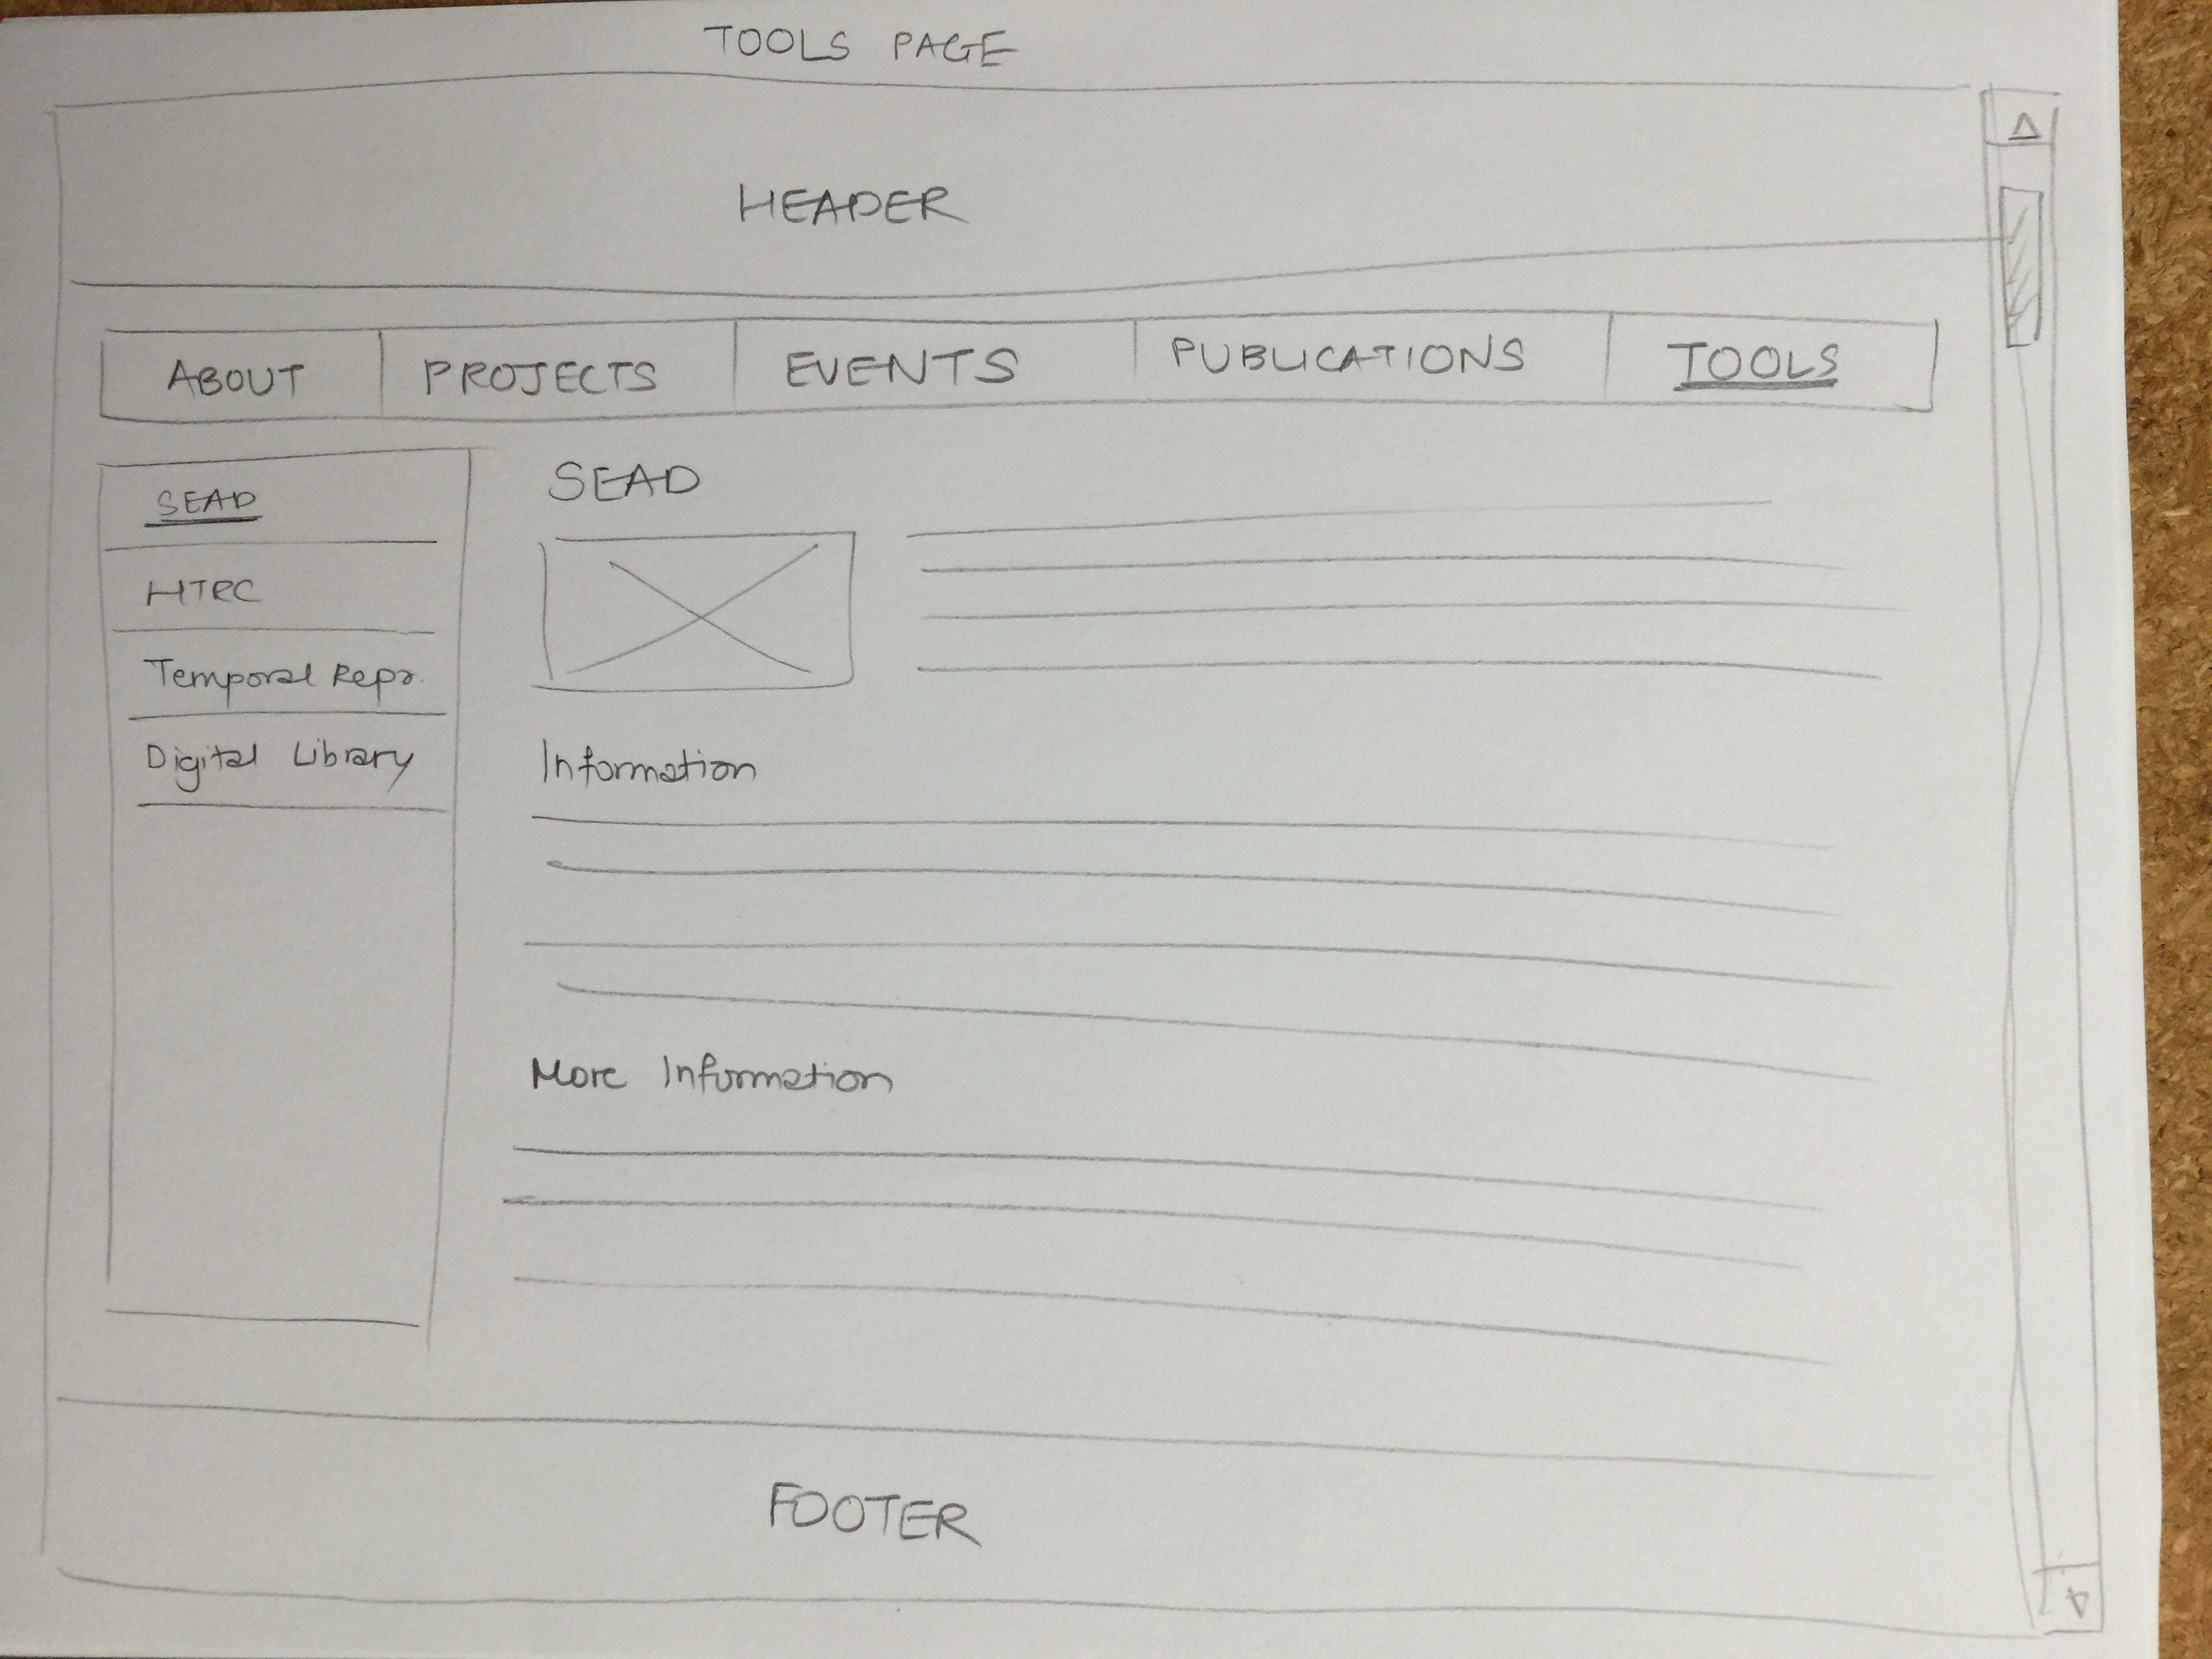 TOOLS PAGE
HEADER
ABOUT PROJECTS EVENTS PUBLICATIONS TOOLS
SEAD
HTRC
Temporal Repr.
Digital Library
SEAD
Information
More Information
FOOTER